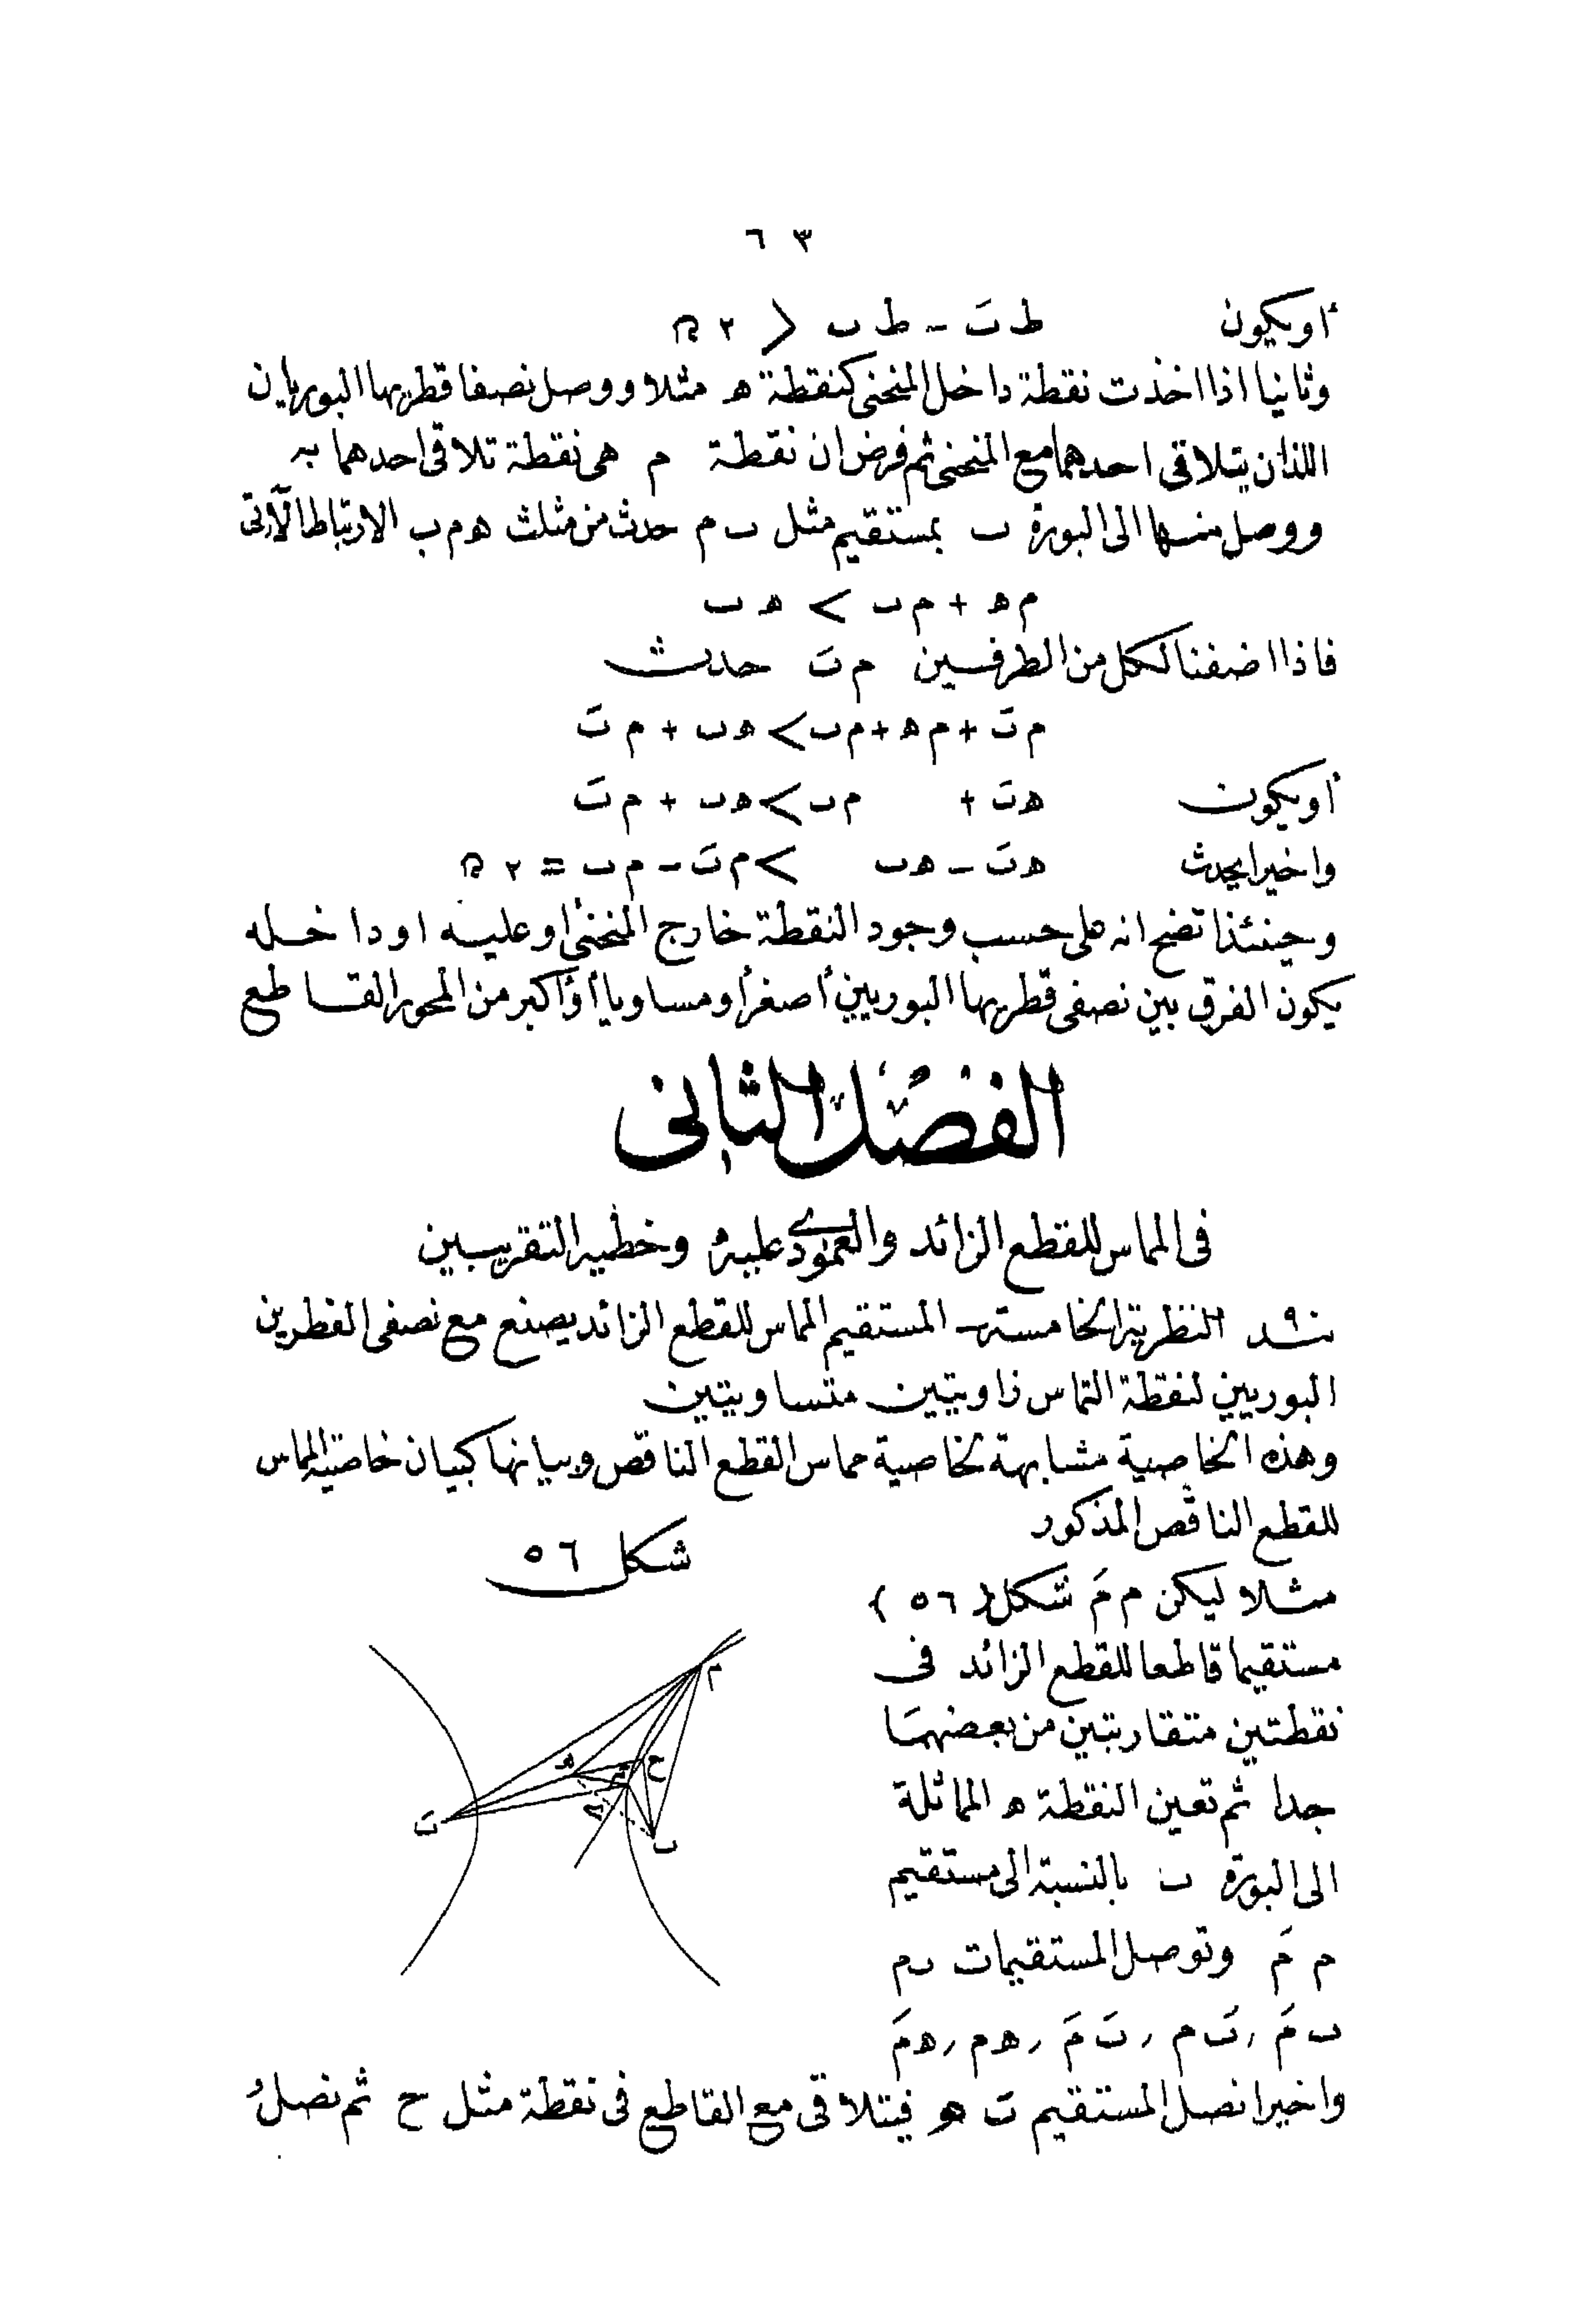 ٦٣
أو يكون ط بَ - ط ب > ٢ ﺭ
وثانيا اذا اخذت نقطة داخل المنحنى كنقطة ه مثلا ووصل نصفا قطريها البوريان
اللذان يتلاقى احدهما مع المنحنى ثم فرض ان نقطة م هى نقطة تلاقى احدهما به
ووصل منها الى البورة ب بمستقيم مثل ب م حدث من مثلث ه م ب الارتباط الآتى
م ه + م ب < ه ب
فاذا اضفنا لكل من الطرفين م بَ حدث
م بَ + م ه + م ب < ه ب + م بَ
أو يكون ه بَ + م ب < ه ب + م بَ
واخيرا يحدث ه بَ - ه ب < م بَ - م ب = ٢
وحينئذ اتضح انه على حسب وجود النقطة خارج المنحنى أو عليه او داخله
يكون الفرق بين نصفى قطريها البوريين أصغر أو مساويا أو أكبر من المحور القاطع
الفصل الثانى
فى المماس للقطع الزائد والعمودى عليه وخطيه التقريبيين
النظرية الخامسة - المستقيم المماس للقطع الزائد يصنع مع نصفى القطرين
البوريين لنقطة التماس زاويتين متساويتين
وهذه الخاصية مشابهة لخاصية مماس القطع الناقص وبيانها كبيان خاصية المماس
للقطع الناقص المذكور
شكل ٥٦
مثلا ليكن م مَ شكل { ٥٦ }
مستقيما قاطعا للقطع الزائد فى
نقطتين متقاربتين من بعضهما
جدا ثم تعين النقطة ه المماثلة
الى البورة ب بالنسبة الى مستقيم
م مَ وتوصل المستقيمات ب م
ب مَ , بَ م , بَ مَ , ه م , ه مَ
واخيرا نصل المستقيم بَ ه فيتلاقى مع القاطع فى نقطة مثل ح ثم نصل
م
ه
ح
مَ
بَ
ب